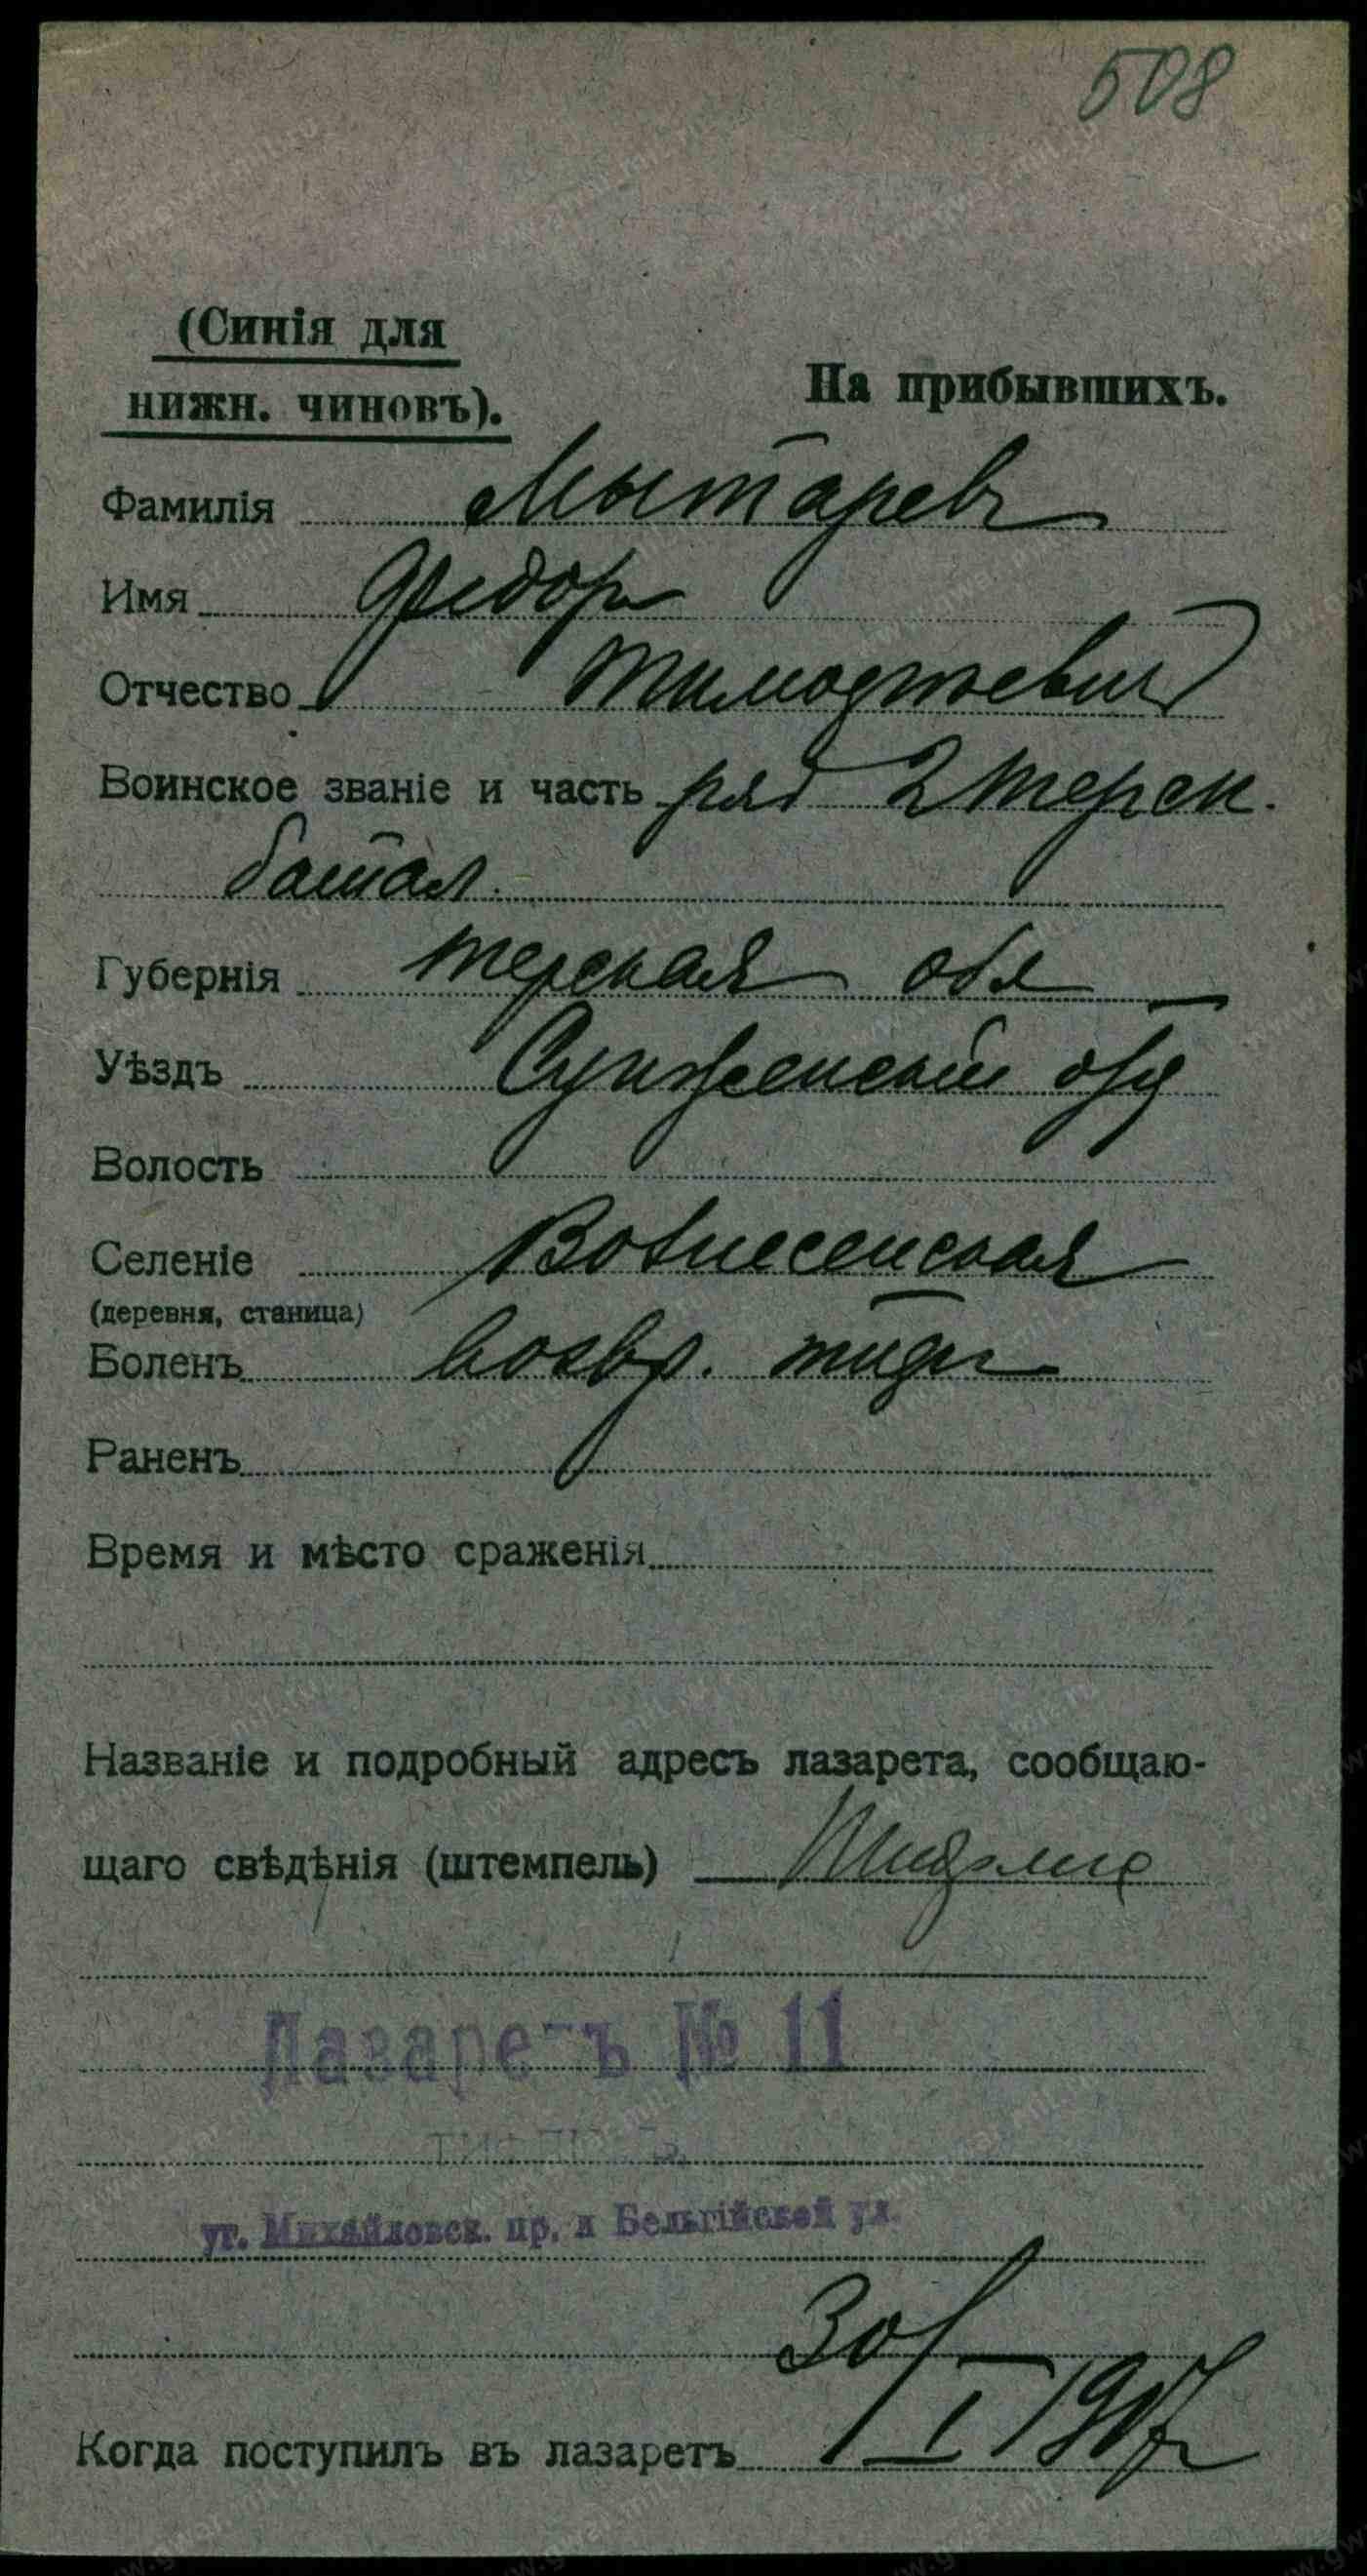 508
(Синія для
нижн. чиновъ).
На прибывшихъ.
Фамилія Мытаревъ
Имя Федоръ
Отчество Тимофеевич
Воинское званіе и часть ряд 2 Терск.
батал.
Губернія Терская обл
Уѣздъ Сунженский отд
Волость
Селеніе Вознесенская
(деревня, станица)
Боленъ возвр. тиф
Раненъ
Время и мѣсто сраженія
Названіе и подробный адресъ лазарета, сообщаю-
щаго свѣдѣнія (штемпель)
Лазаретъ № 11
ТИФЛИСЪ.
уг. Михайловск. пр. и Бельгійской ул.
30/I 1917
Когда поступилъ въ лазаретъ